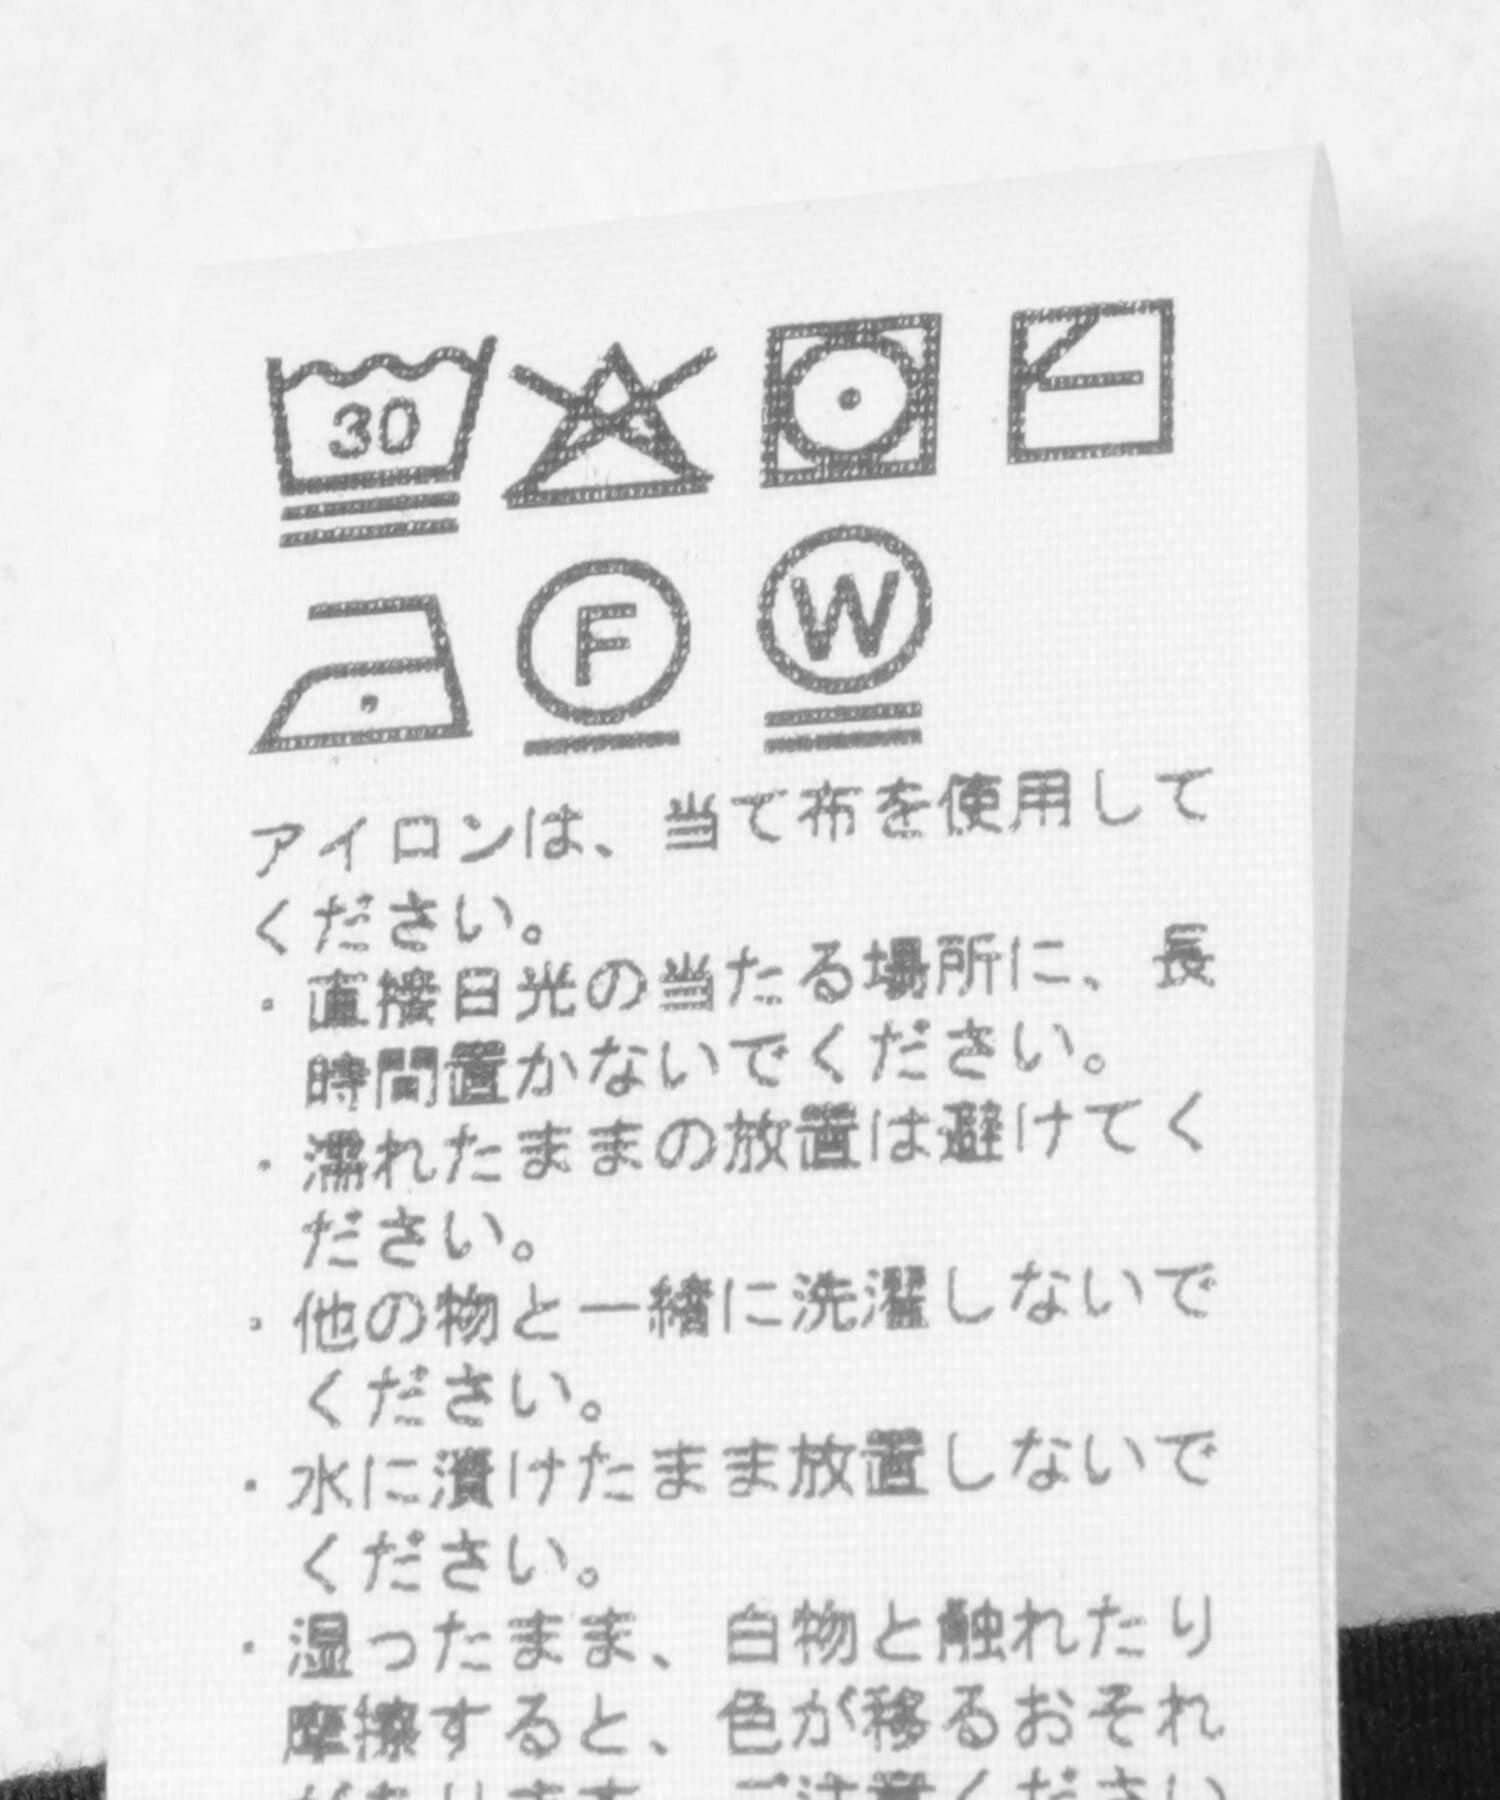 30
F W
アイロンは、当て布を使用して
ください。
・直接日光の当たる場所に、長
時間置かないでください。
・濡れたままの放置は避けてく
ださい。
・他の物と一緒に洗濯しないで
ください。
・水に漬けたまま放置しないで
ください。
・湿ったまま、白物と触れたり
摩擦すると、色が移るおそれ
があります。ご注意ください